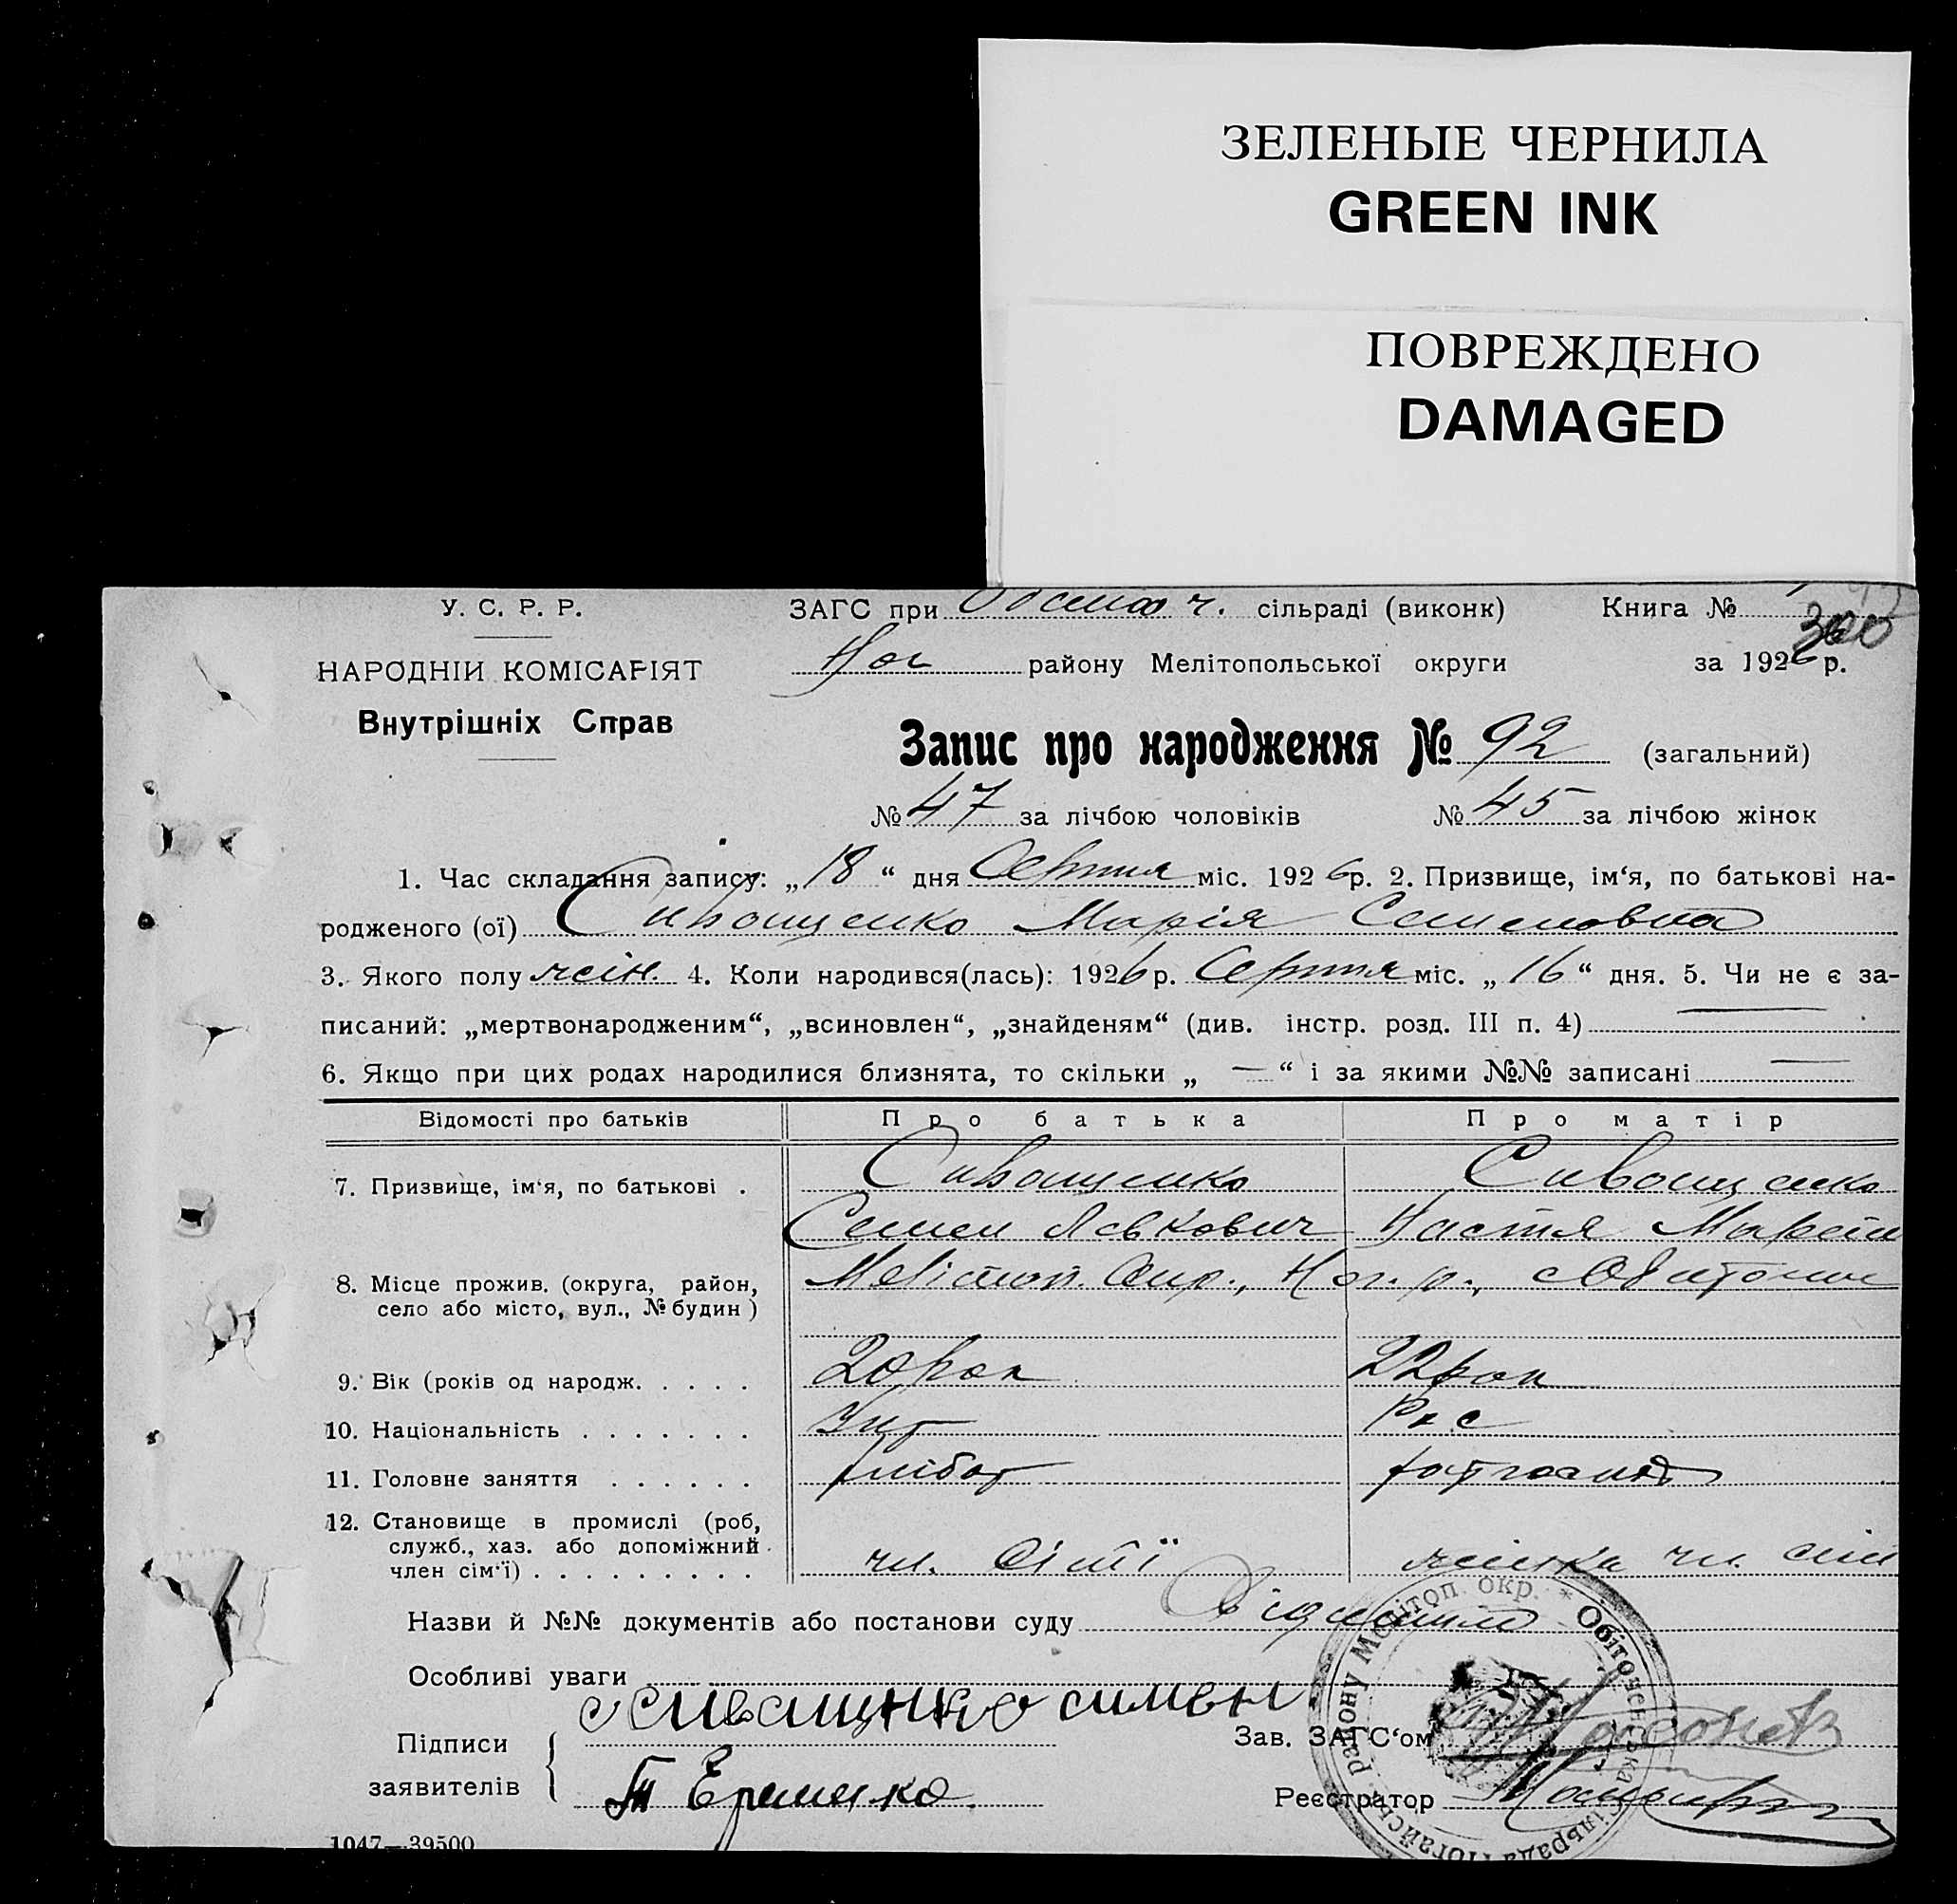 ЗЕЛЕНЫЕ ЧЕРНИЛА
GREEN INK
ПОВРЕЖДЕНО
DAMAGED
У. С. Р. Р.
ЗАГС при сільраді (виконк) Книга №
300
НАРОДНІЙ КОМІСАРІЯТ
Ног району Мелітопольської округи за 1926 р.
Внутрішніх Справ
Запис про народження № 92 (загальний)
№ 47 за лічбою чоловіків № 45 за лічбою жінок
1. Час складання запису: „18“ дня Серпня міс. 1926 р. 2. Призвище, ім‘я, по батькові на-
родженого (ої) Сивощенко Марія Семеновна
3. Якого полу жін. 4. Коли народився(лась): 1926 р. Серпня міс. „16“ дня. 5. Чи не є за-
писаний: „мертвонародженим“, „всиновлен“, „знайденям“ (див. інстр. розд. III п. 4) —
6. Якщо при цих родах народилися близнята, то скільки „ — “ і за якими №№ записані —
Відомості про батьків Про батька Про матір
7. Призвище, ім‘я, по батькові . Сивощенко Сивощенко
Семен Явкович Настя
8. Місце прожив. (округа, район, Меліпоп. Окр., Ног. р.,
село або місто, вул., № будин )
9. Вік (років од народж. . . . . 20 рок 22 рок
10. Національність . . . . . . . Укр Рус
11. Головне заняття . . . . . . хлібор
12. Становище в промислі (роб,
служб., хаз. або допоміжний
член сім‘ї) . . . . . . . . . чл. сімї жінка чл. сім
Назви й №№ документів або постанови суду
Особливі уваги
Підписи
заявителів
Т Еременко
Зав. ЗАГС‘ом
Реєстратор
Обіточенська сільрада Ногайськ. району Мелітоп. окр. *
1047—39500